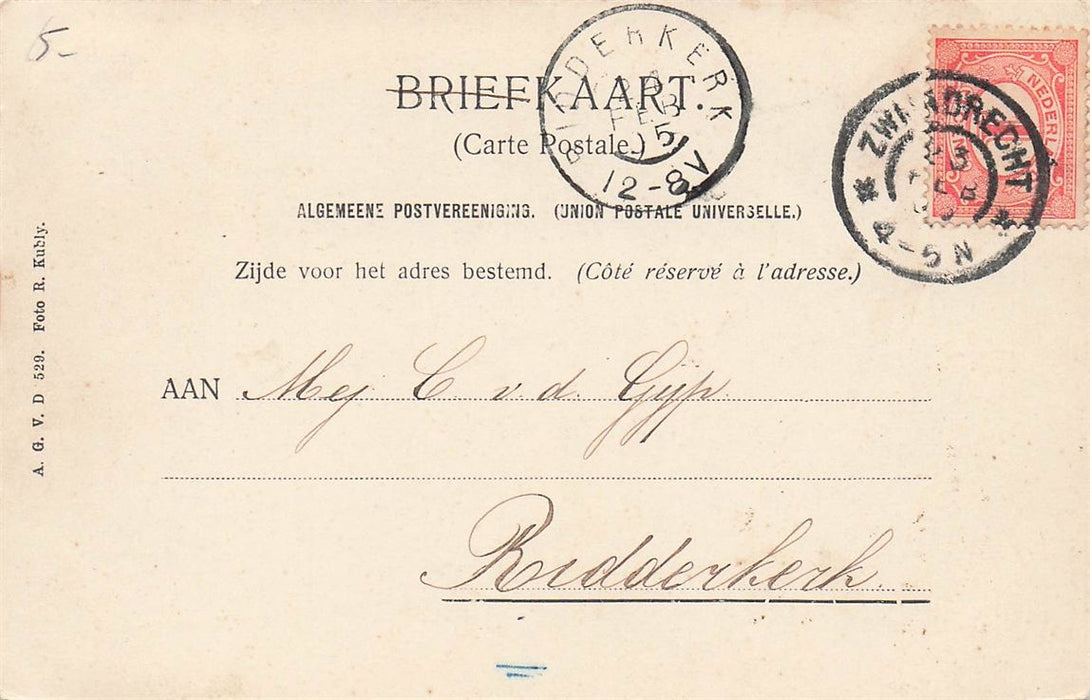 5-
RIDDERKERK
FEB
5
12-8V
NEDERL
ZWIJNDRECHT
23
FEB
4-5N
BRIEFKAART.
(Carte Postale.)
ALGEMEENE POSTVEREENIGING. (UNION POSTALE UNIVERSELLE.)
Zijde voor het adres bestemd. (Côté réservé à l'adresse.)
A. G. V. D 529. Foto R. Kubly.
AAN Mej C v. d. Gijp.
Ridderkerk.